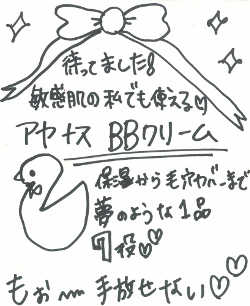 待ってました!
敏感肌の私でも使える♡
アヤナス BBクリーム
保湿から毛穴カバーまで
夢のような1品
7役♡♡
もぉ〜手放せない♡♡